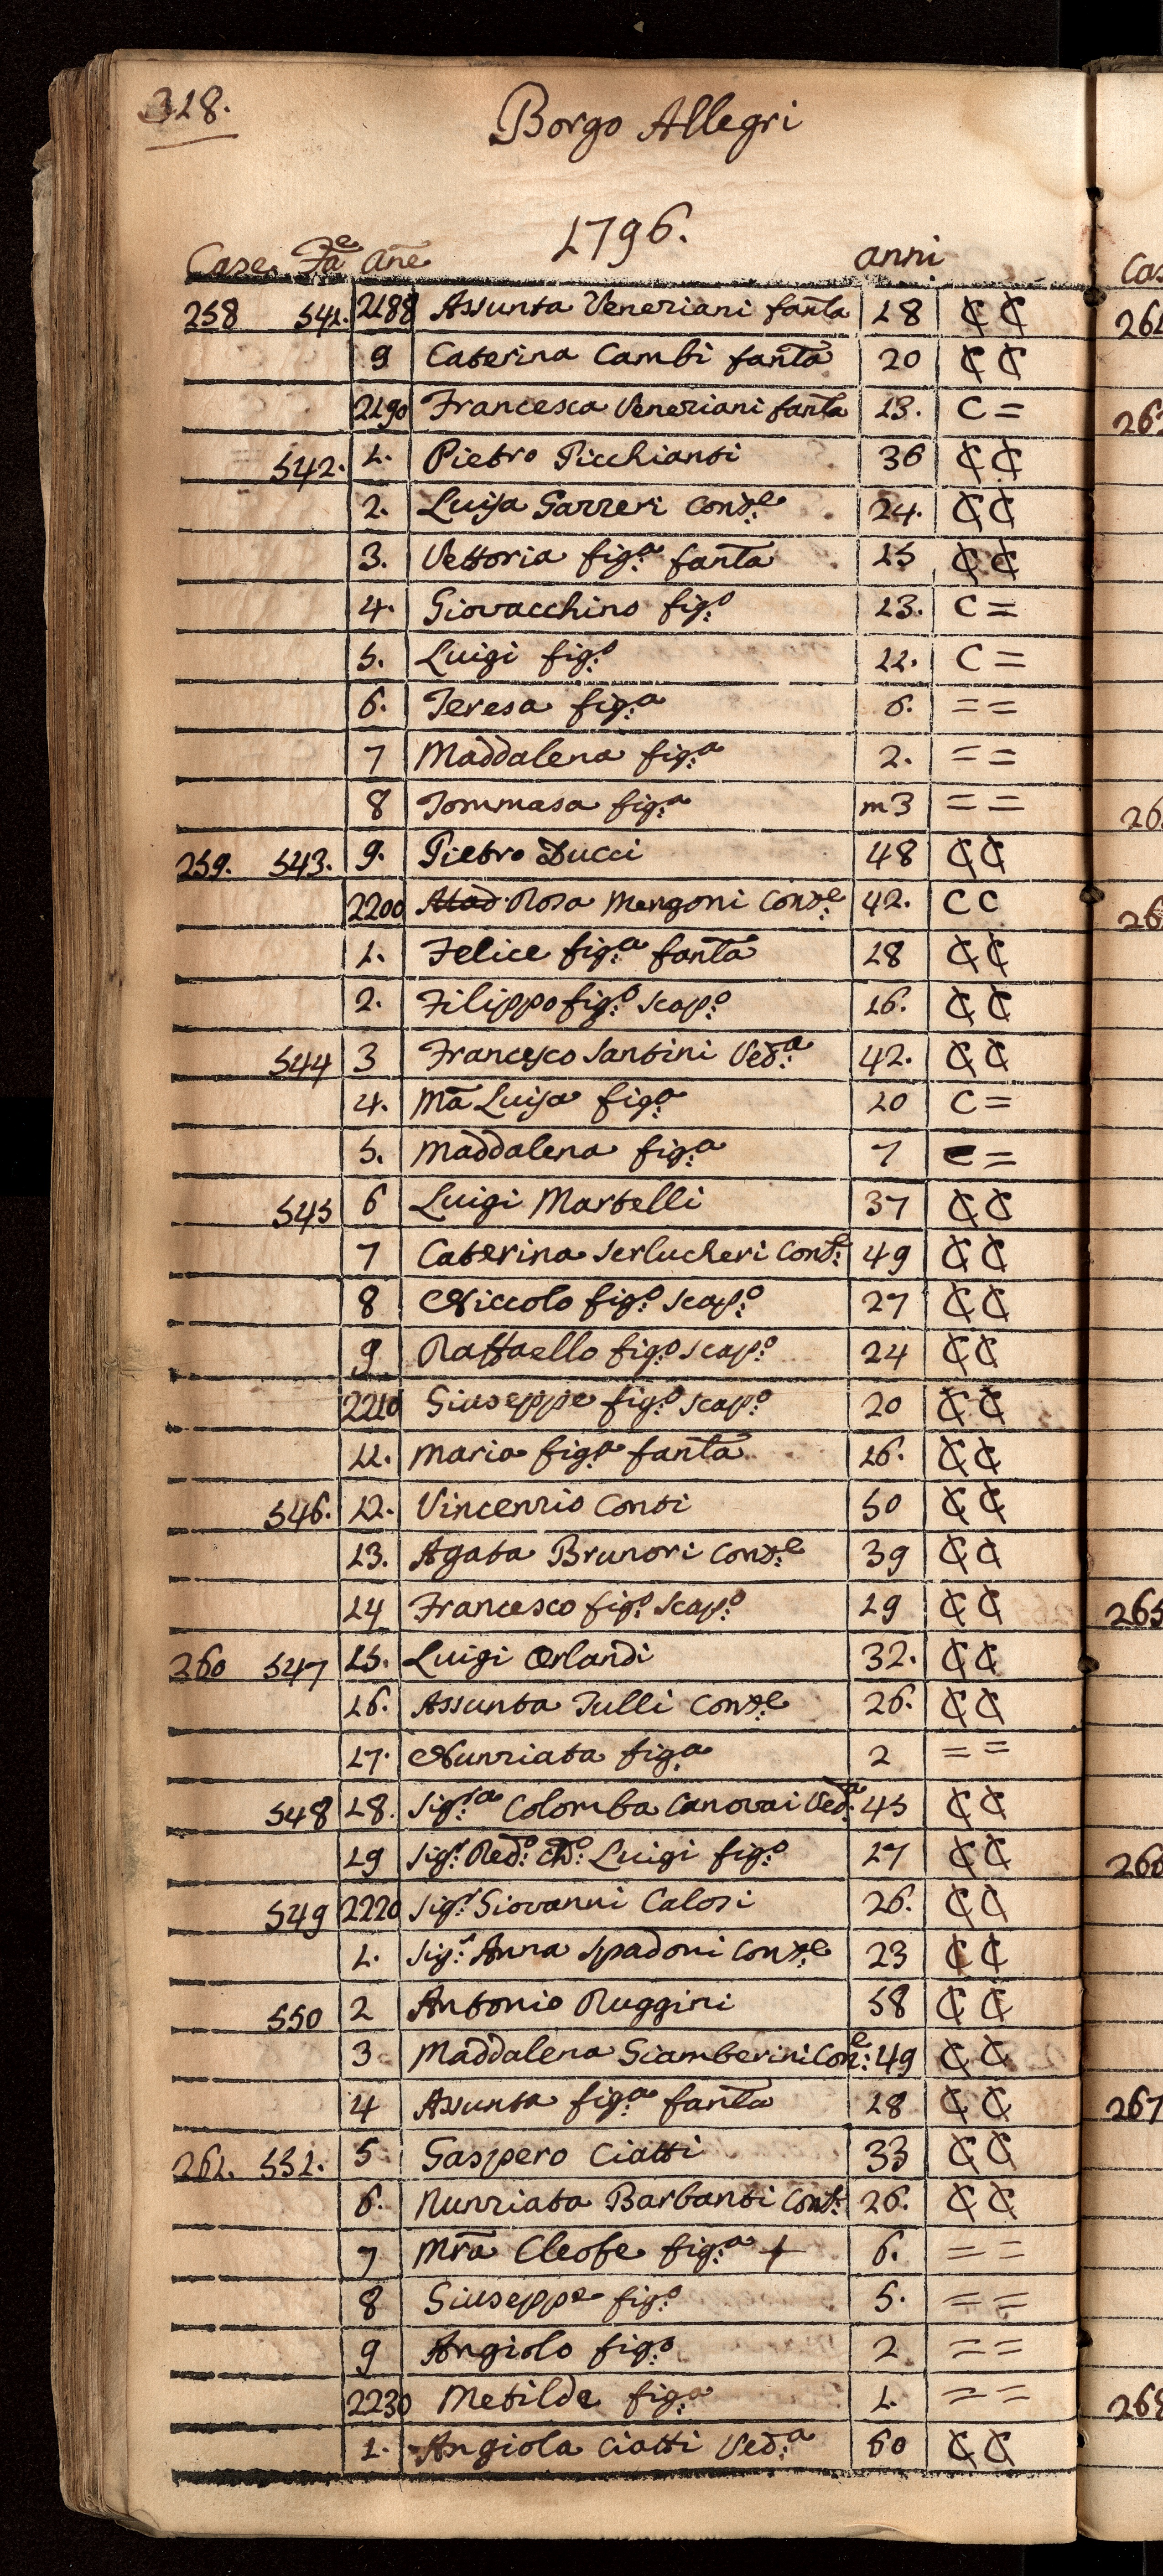 318.
Borgo Allegri
1796.
Case Fãe Ane anni
258 541. 2188 Assunta Veneziani fanta 18 C C
9 Caterina Cambi fanta 20 C C
2190 Francesca Veneziani fanta 13. C =
542. 1. Pietro Picchianti 36 C C
2. Luisa Garzeri Conse 24. C C
3. Vettoria fig:a fanta 15 C C
4. Giovacchino fig:o 13. C =
5. Luigi fig:o 11. C =
6. Teresa fig:a 6. = =
7 Maddalena fig:a 2. = =
8 Tommasa fig:a m3 = =
259. 543. 9. Pietro Ducci 48 C C
2200 Rosa Mengoni Cons:e 42. C C
1. Felice fig:a fanta 18 C C
2. Filippo fig:o scap:o 16. C C
544 3 Francesco Santini Ved:a 42. C C
4. Mã Luisa fig:a 10 C =
5. Maddalena fig:a 7 =
545 6 Luigi Martelli 37 C C
7 Caterina Serlucheri Cons: 49 C C
8 Niccolo fig:o scap:o 27 C C
9 Raffaello fig:o scap:o 24 C C
2210 Giuseppe fig:o scap:o 20 C C
11. Maria fig:a fanta 16. C C
546. 12. Vincenzio Conti 50 C C
13. Agata Brunori Cons:e 39 C C
14 Francesco fig:o scap:o 19 C C
260 547 15. Luigi Orlandi 32. C C
16. Assunta Tulli Cons:e 26. C C
17. Nunziata fig:a 2 = =
548 18. Sig:ra Colomba Canovai Ved:a 45 C C
19 Sig:r Red:o Luigi fig:o 17 C C
549 2220 Sig:r Giovanni Calosi 26. C C
1. Sig:a Anna Spadoni Cons:e 23 C C
550 2 Antonio Ruggini 58 C C
3 Maddalena Giamberini Con:e 49 C C
4 Assunta fig:a fanta 18 C C
261. 551. 5 Gaspero Ciatti 33 C C
6. Nunziata Barbanti Cons: 26. C C
7 Mrã Cleofe fig:a + 6. = =
8 Giuseppe fig:o 5. = =
9 Angiolo fig:o 2 = =
2230 Metilde fig:a 1. = =
1. Angiola Ciatti Ved:a 60 C C
265
267